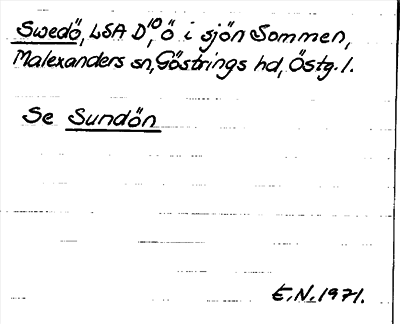 Swedö, LSA D10, ö i sjön Sommen,
Malexanders sn, Göstrings hd, Östg. l.
Se Sundön
E.N. 1971.